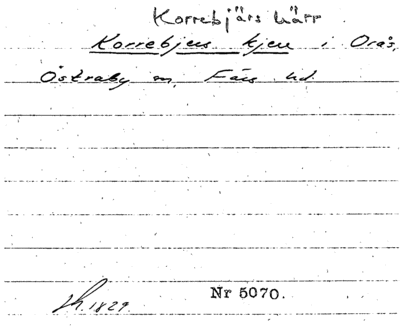 Korrebjärs kärr
Korrebjers kjer i Orås,
Östraby sn, Färs hd.
Nr 5070.
1829.